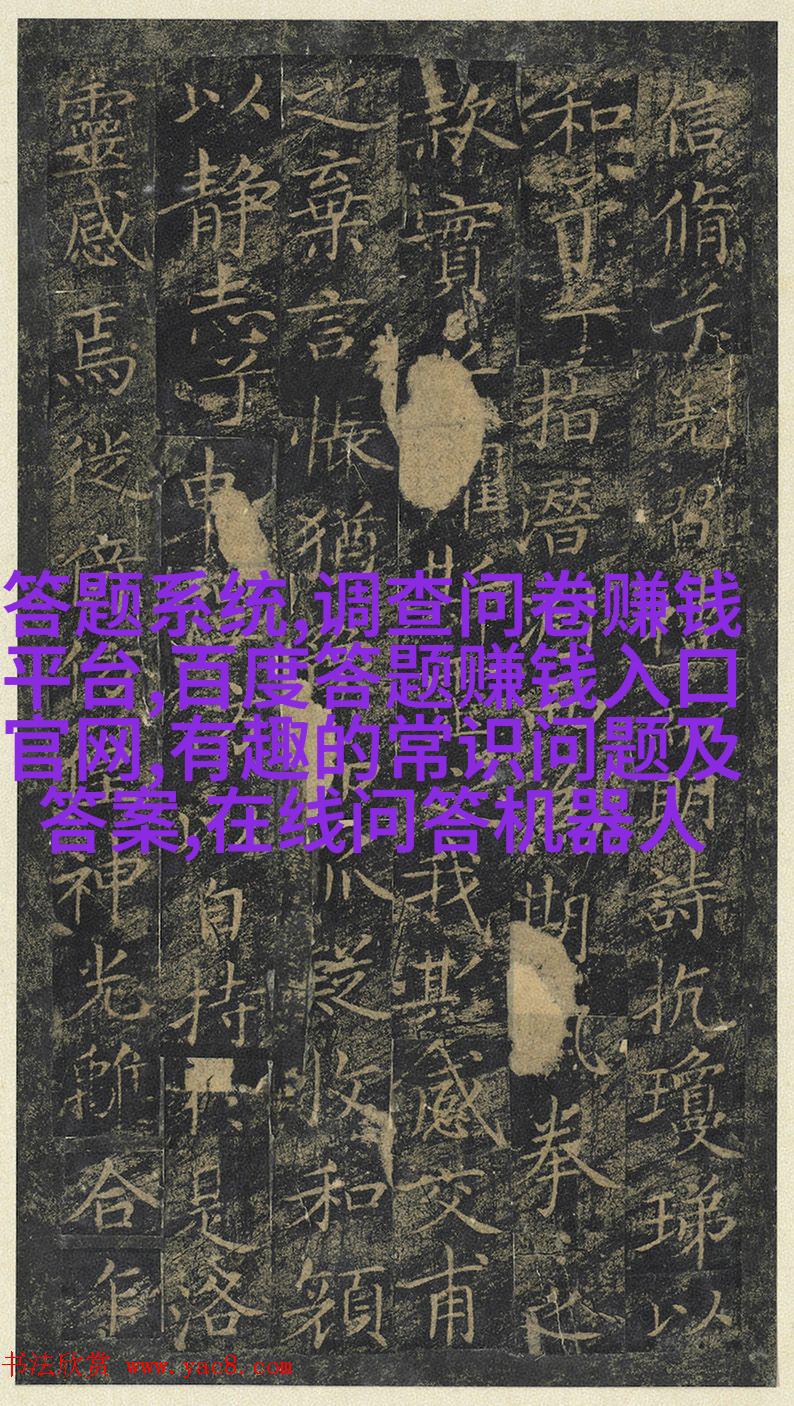 信脩兮羌習明詩抗瓊珶以
和予兮指潛期拳之
款實之斯我欺感交甫
之棄言悵猶疑收和顏
以静志兮申自持是洛
靈感焉徙神光離合乍
答题系统,调查问卷赚钱
平台,百度答题赚钱入口
官网,有趣的常识问题及
答案,在线问答机器人
书法欣赏 www.yac8.com